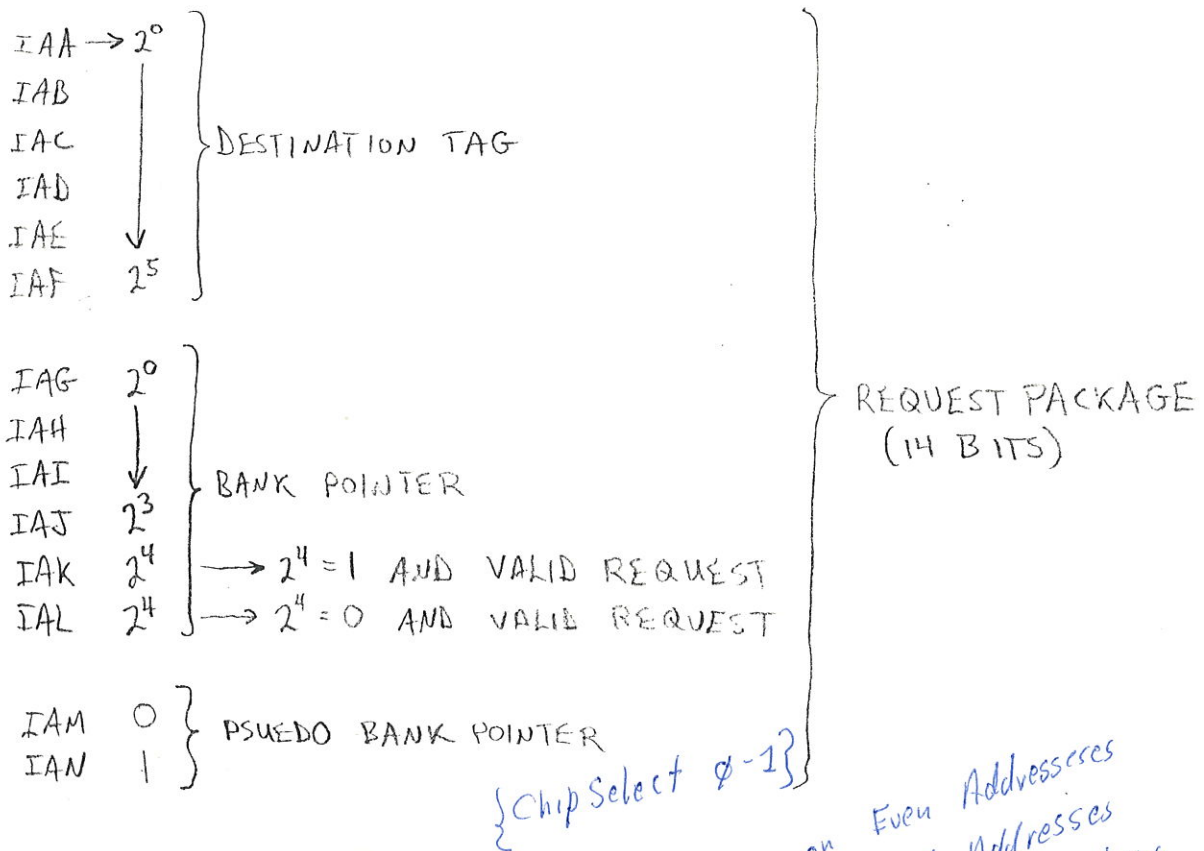 IAA → 2⁰
IAB
IAC
IAD
IAE
IAF 2⁵
DESTINATION TAG
IAG 2⁰
IAH
IAI
IAJ 2³
IAK 2⁴ → 2⁴ = 1 AND VALID REQUEST
IAL 2⁴ → 2⁴ = 0 AND VALID REQUEST
BANK POINTER
IAM 0
IAN 1
PSUEDO BANK POINTER
REQUEST PACKAGE
(14 BITS)
{Chip Select ø-1}
on Even Addresseses
Addresses